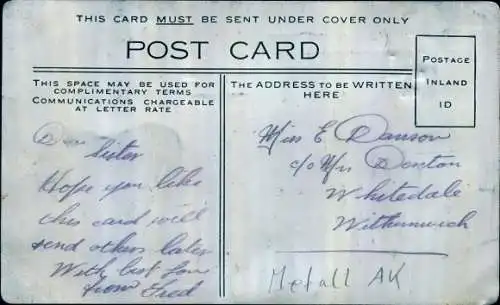 THIS CARD MUST BE SENT UNDER COVER ONLY
POST CARD
THIS SPACE MAY BE USED FOR
COMPLIMENTARY TERMS
COMMUNICATIONS CHARGEABLE
AT LETTER RATE
Dear Sister
Hope you like
this card will
send others later
With best love
from Fred
THE ADDRESS TO BE WRITTEN
HERE
POSTAGE
INLAND
1D
Miss E Dawson
c/o Mrs Denton
Whitedale
Withernwich
Metall AK